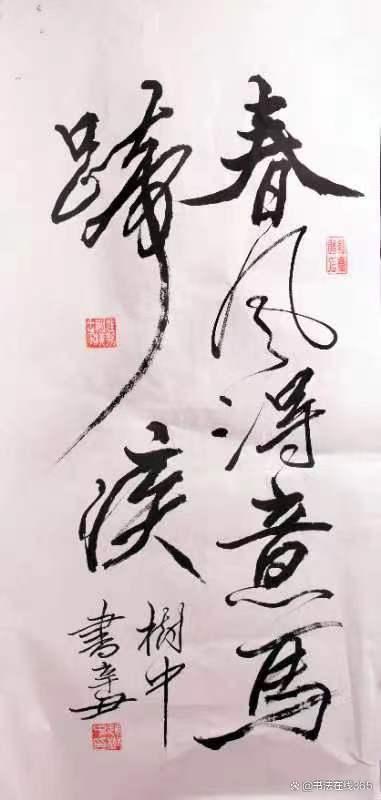 春风得意馬
蹄疾
樹中
書辛丑
@书法在线365